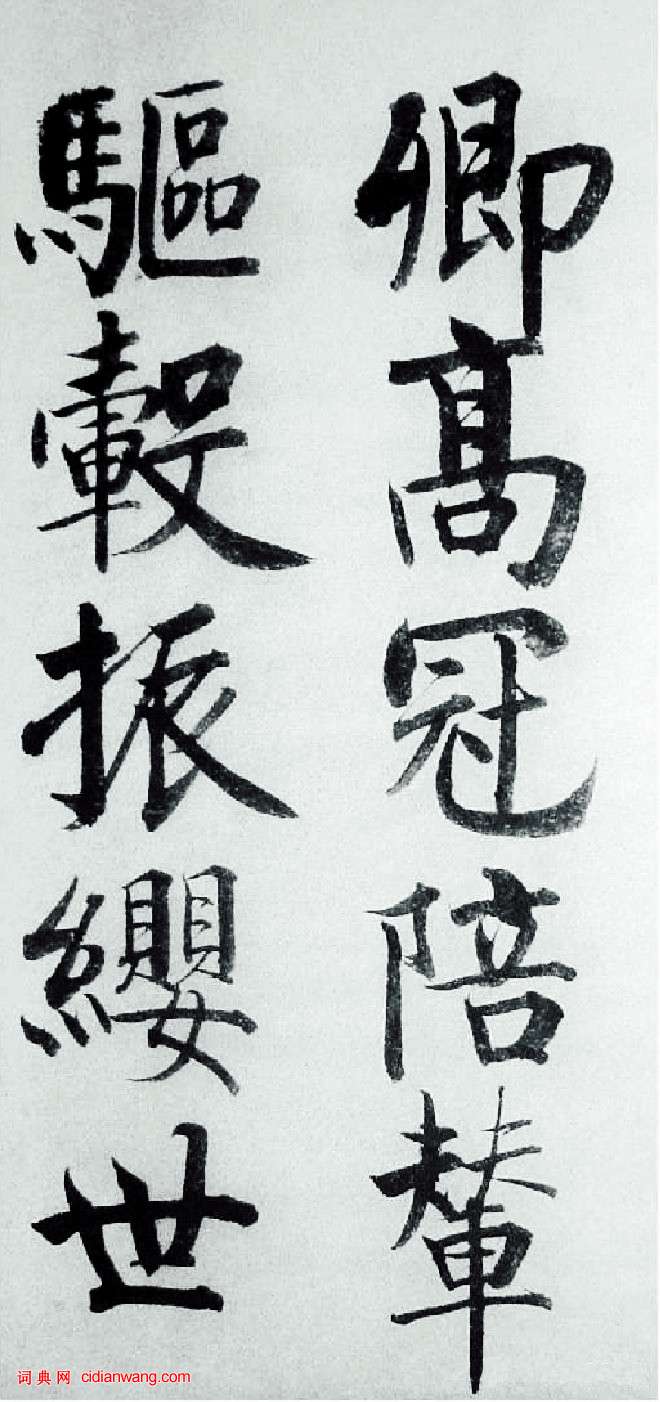 卿高冠陪輦
驅轂振纓世
词典网 cidianwang.com